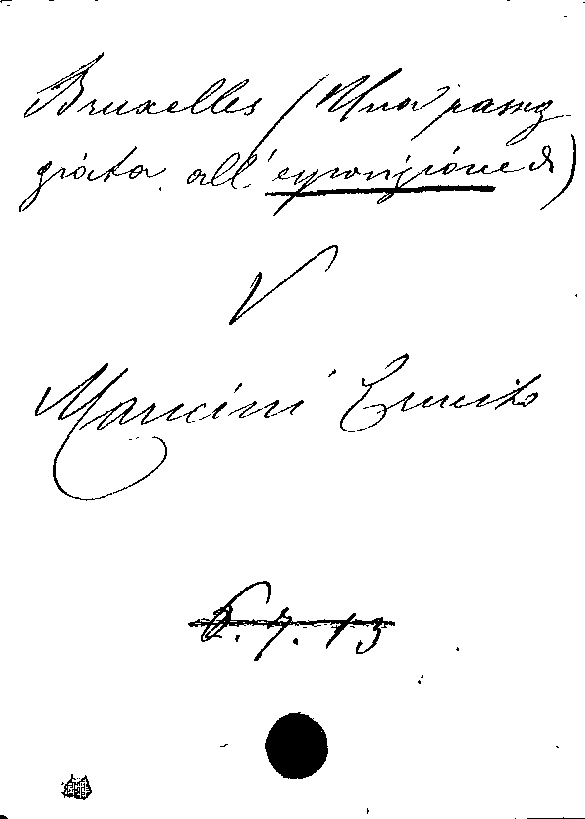 Bruxelles (Una passeg
giata all'esposizione di)
V
Mancini Ernesto
6. 7. 13